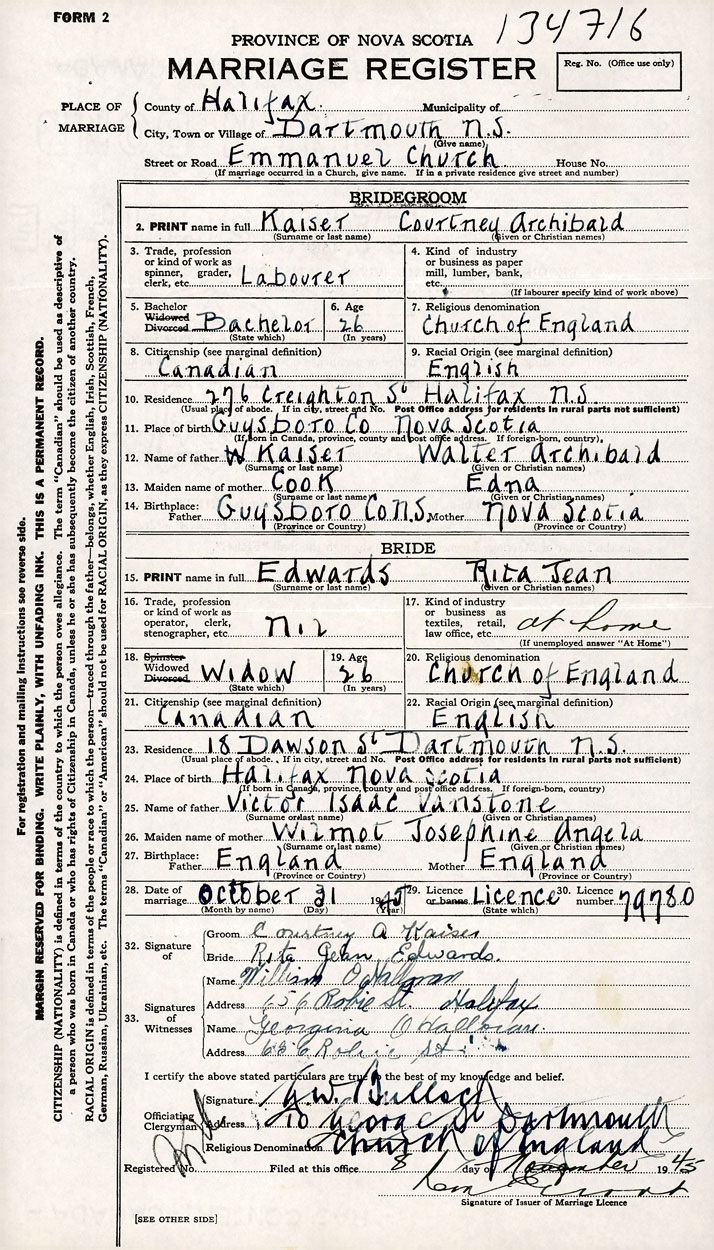 FORM 2
134716
PROVINCE OF NOVA SCOTIA
MARRIAGE REGISTER
Reg. No. (Office use only)
PLACE OF MARRIAGE
County of Halifax. Municipality of
City, Town or Village of Dartmouth N.S.
(Give name)
Street or Road Emmanuel Church House No.
(If marriage occurred in a Church, give name. If in a private residence give street and number)
BRIDEGROOM
2. PRINT name in full Kaiser Courtney Archibald
(Surname or last name) (Given or Christian names)
3. Trade, profession or kind of work as spinner, grader, clerk, etc. Labourer
4. Kind of industry or business as paper mill, lumber, bank, etc.
(If labourer specify kind of work above)
5. Bachelor Widowed Divorced Bachelor
(State which)
6. Age 26
(In years)
7. Religious denomination
Church of England
8. Citizenship (see marginal definition)
Canadian
9. Racial Origin (see marginal definition)
English
10. Residence 276 Creighton St Halifax N.S.
(Usual place of abode. If in city, street and No. Post Office address for residents in rural parts not sufficient)
11. Place of birth Guysboro Co Nova Scotia
(If born in Canada, province, county and post office address. If foreign-born, country).
12. Name of father W Kaiser Walter Archibald
(Surname or last name) (Given or Christian names)
13. Maiden name of mother Cook Edna
(Surname or last name) (Given or Christian names)
14. Birthplace: Father Guysboro Co N.S. Mother Nova Scotia
(Province or Country) (Province or Country)
BRIDE
15. PRINT name in full Edwards Rita Jean
(Surname or last name) (Given or Christian names)
16. Trade, profession or kind of work as operator, clerk, stenographer, etc. Nil
17. Kind of industry or business as textiles, retail, law office, etc. at home
(If unemployed answer "At Home")
18. Spinster Widowed Divorced Widow
(State which)
19. Age 26
(In years)
20. Religious denomination
Church of England
21. Citizenship (see marginal definition)
Canadian
22. Racial Origin (see marginal definition)
English
23. Residence 18 Dawson St Dartmouth N.S.
(Usual place of abode. If in city, street and No. Post Office address for residents in rural parts not sufficient)
24. Place of birth Halifax Nova Scotia
(If born in Canada, province, county and post office address. If foreign-born, country)
25. Name of father Victor Isaac Vanstone
(Surname or last name) (Given or Christian names)
26. Maiden name of mother Wilmot Josephine Angela
(Surname or last name) (Given or Christian names)
27. Birthplace: Father England Mother England
(Province or Country) (Province or Country)
28. Date of marriage October 31 1945
(Month by name) (Day) (Year)
29. Licence or banns Licence
(State which)
30. Licence number 79780
32. Signature of
Groom Courtney A Kaiser
Bride Rita Jean Edwards.
33. Signatures of Witnesses
Name William O'Halloran
Address 656 Robie St. Halifax
Name Georgina O'Halloran.
Address 656 Robie St
I certify the above stated particulars are true to the best of my knowledge and belief.
Officiating Clergyman
Signature G.W. Bulloch
Address 10 George St Dartmouth
Religious Denomination Church of England
Registered No. Filed at this office 8 day of November 1945
Signature of Issuer of Marriage Licence
[SEE OTHER SIDE]
For registration and mailing instructions see reverse side.
MARGIN RESERVED FOR BINDING. WRITE PLAINLY, WITH UNFADING INK. THIS IS A PERMANENT RECORD.
CITIZENSHIP (NATIONALITY) is defined in terms of the country to which the person owes allegiance. The term "Canadian" should be used as descriptive of
a person who was born in Canada or who has rights of Citizenship in Canada, unless he or she has subsequently become the citizen of another country.
RACIAL ORIGIN is defined in terms of the people or race to which the person—traced through the father—belongs, whether English, Irish, Scottish, French,
German, Russian, Ukrainian, etc. The terms "Canadian" or "American" should not be used for RACIAL ORIGIN, as they express CITIZENSHIP (NATIONALITY).